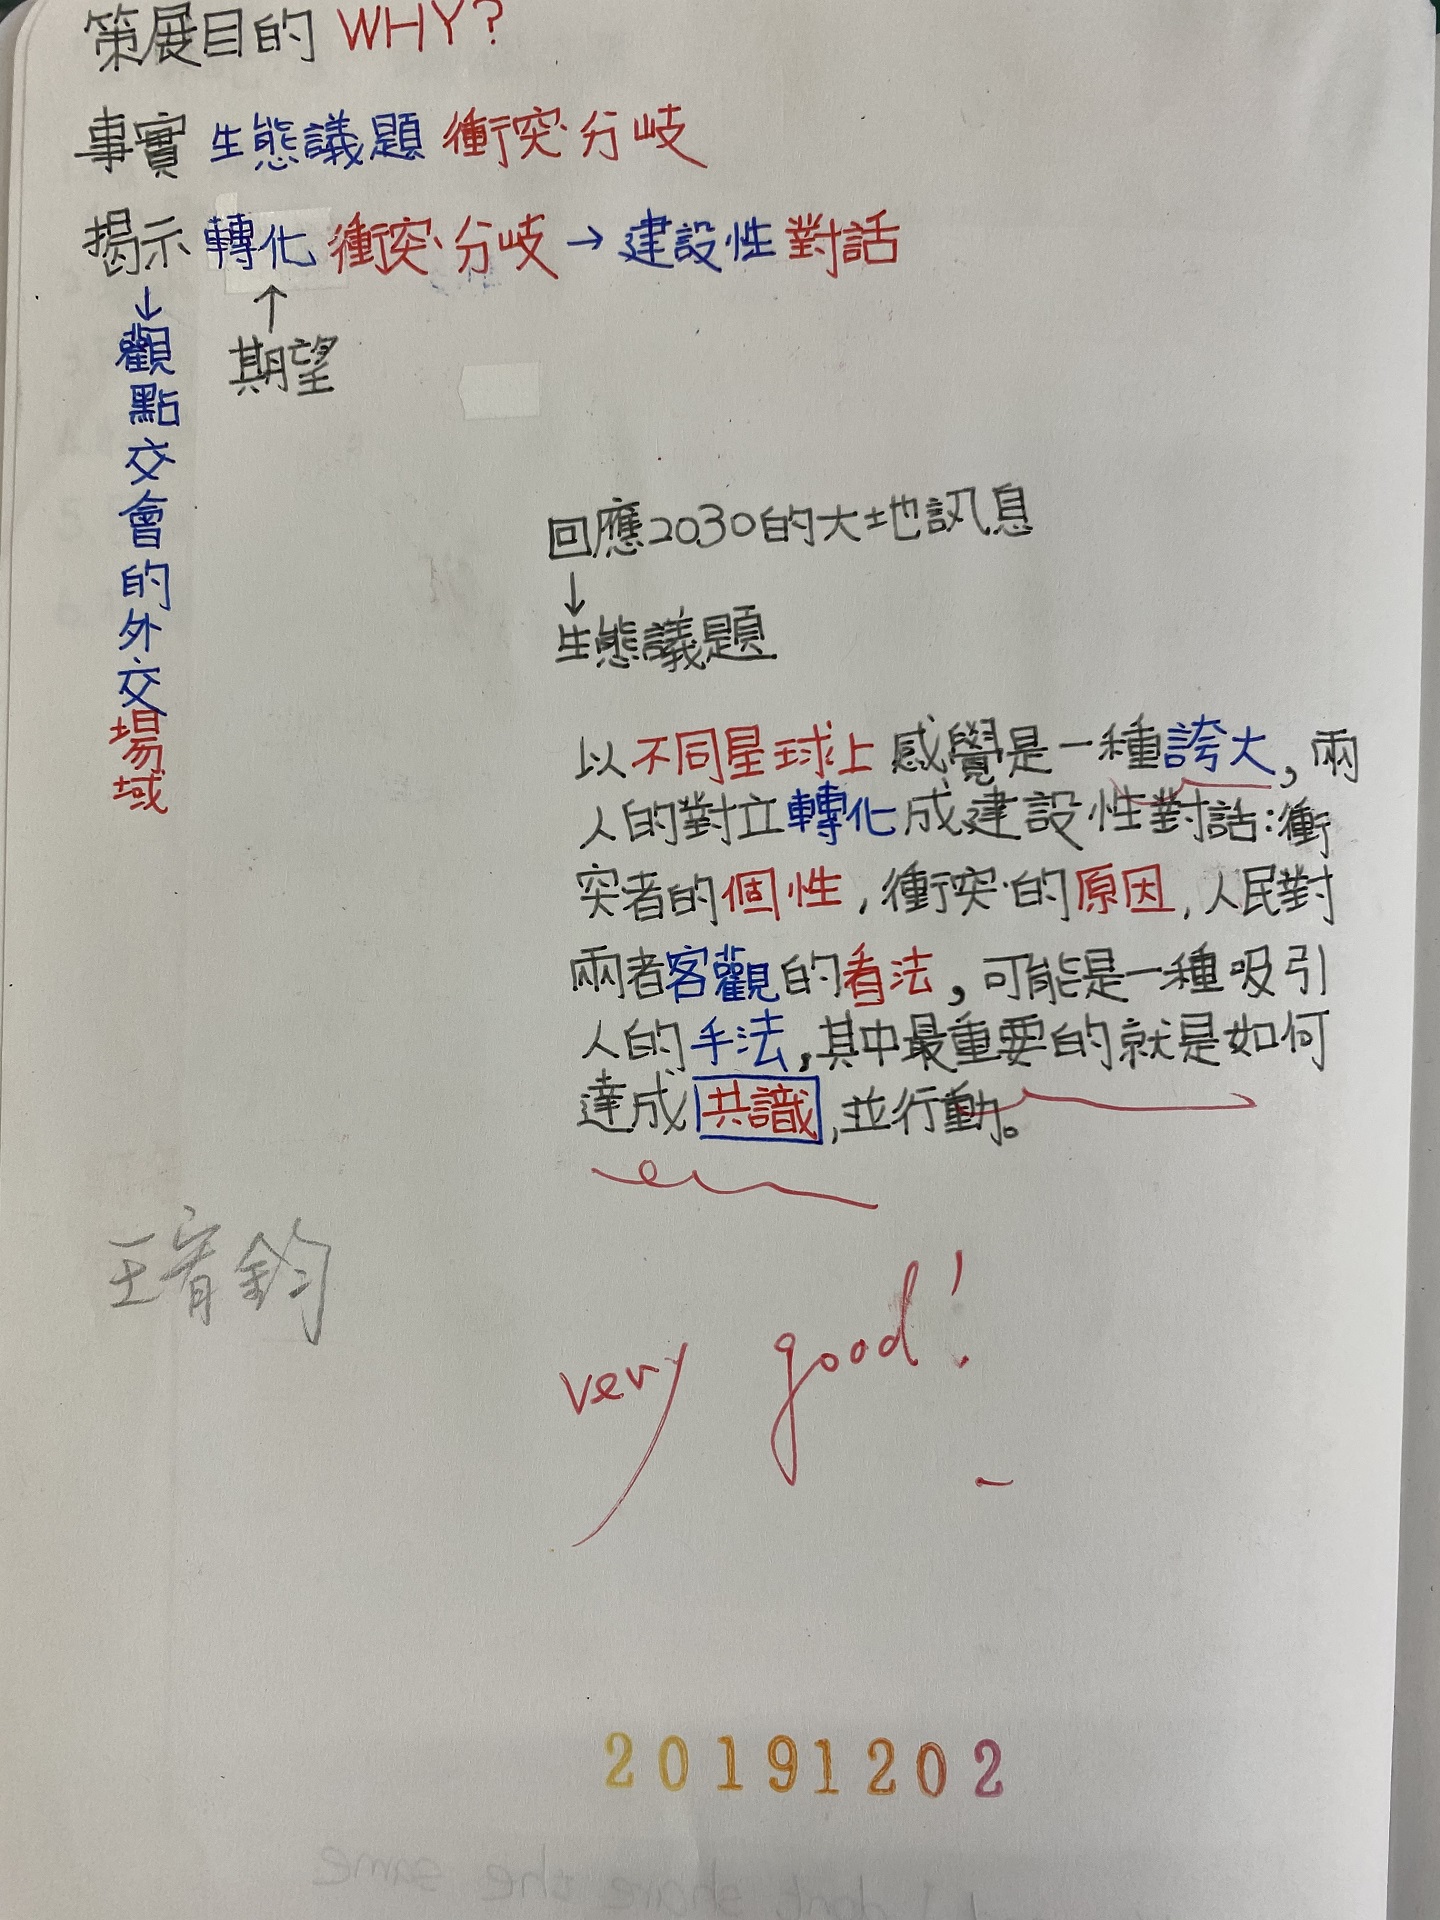 策展目的 WHY?
事實 生態議題 衝突·分歧
揭示 轉化 衝突·分歧→建設性對話
↓
觀點交會的外交場域
↑
期望
回應2030的大地訊息
↓
生態議題
以不同星球上感覺是一種誇大,兩
人的對立轉化成建設性對話:衝
突者的個性,衝突·的原因,人民對
兩者客觀的看法,可能是一種吸引
人的手法,其中最重要的就是如何
達成共識,並行動。
very good!
20191202